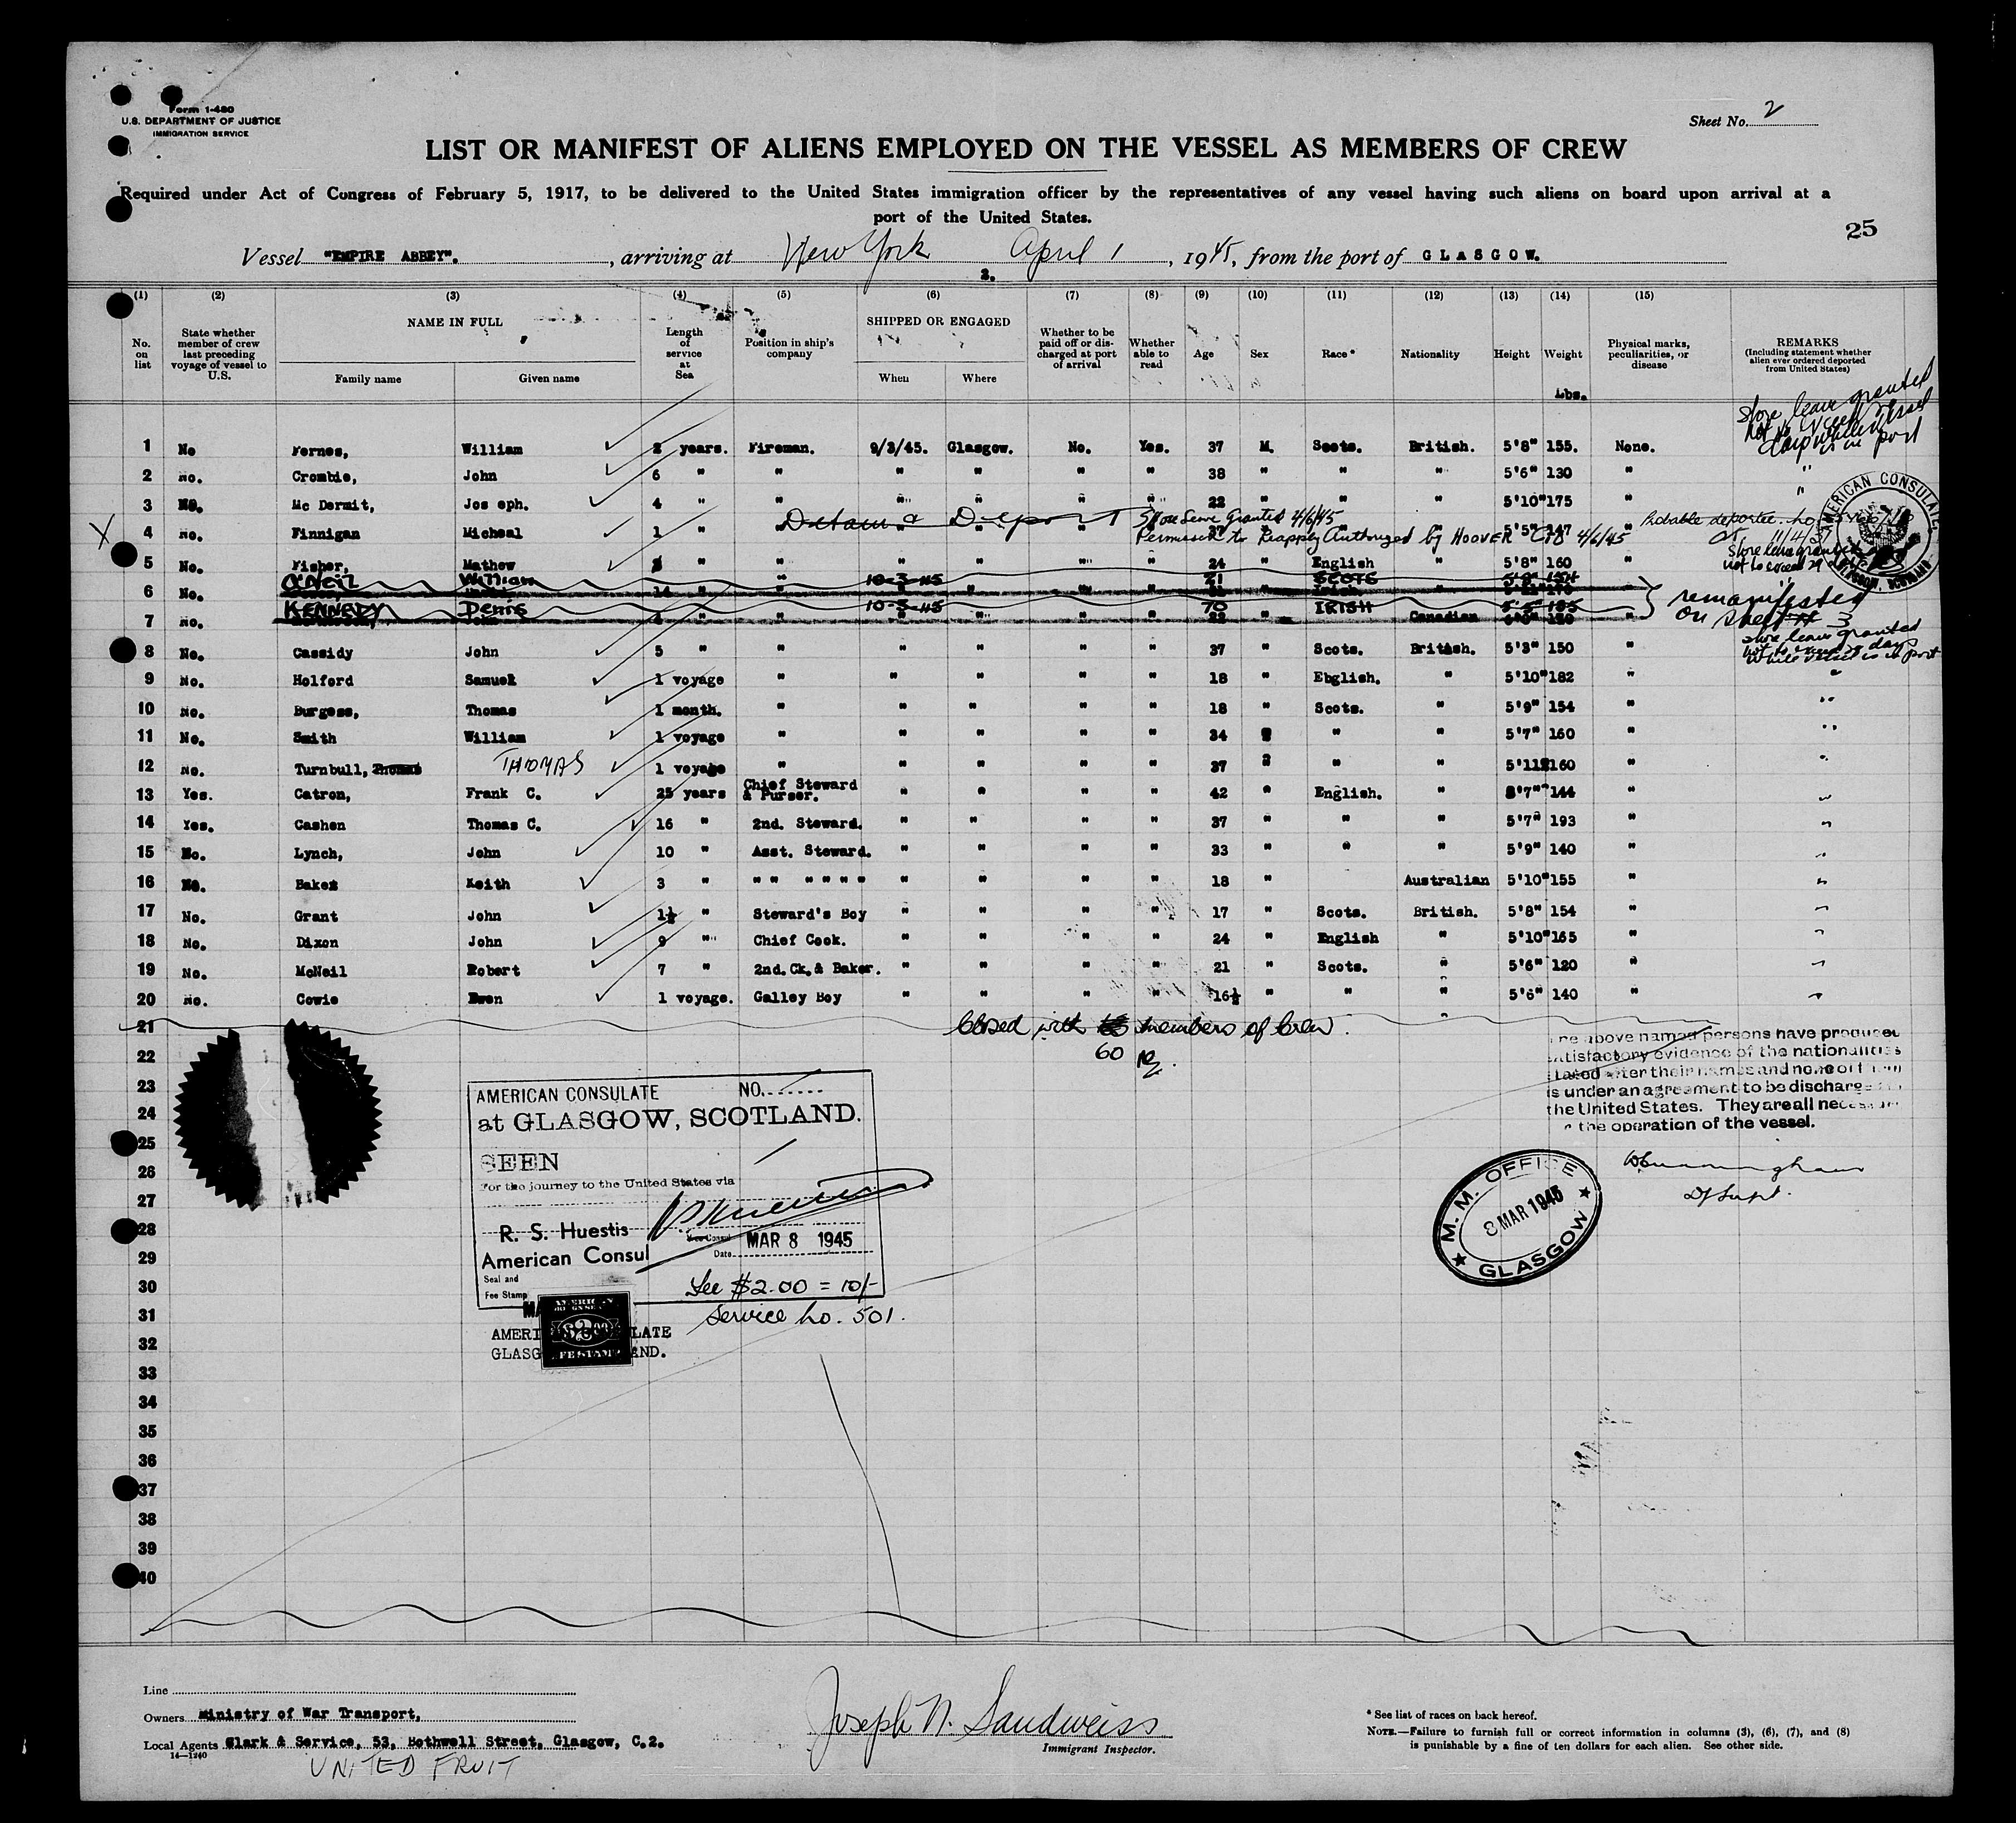 Form I-480
U.S. DEPARTMENT OF JUSTICE
IMMIGRATION SERVICE
Sheet No. 2
LIST OR MANIFEST OF ALIENS EMPLOYED ON THE VESSEL AS MEMBERS OF CREW
Required under Act of Congress of February 5, 1917, to be delivered to the United States immigration officer by the representatives of any vessel having such aliens on board upon arrival at a
port of the United States.
25
Vessel "EMPIRE ABBEY"., arriving at New York April 1, 1945, from the port of GLASGOW.
2.
(1) (2) (3) (4) (5) (6) (7) (8) (9) (10) (11) (12) (13) (14) (15)
No. on list
State whether member of crew last preceding voyage of vessel to U.S.
NAME IN FULL
Family name Given name
Length of service at Sea
Position in ship's company
SHIPPED OR ENGAGED
When Where
Whether to be paid off or discharged at port of arrival
Whether able to read
Age
Sex
Race*
Nationality
Height
Weight
Lbs.
Physical marks, peculiarities, or disease
REMARKS
(Including statement whether alien ever ordered deported from United States)
Shore leave granted
is in port
1 No Fernes, William 2 years. Fireman. 9/3/45. Glasgow. No. Yes. 37 M. Scots. British. 5'8" 155. None.
2 No. Crombie, John 6 " " " " " " 38 " " " 5'6" 130 " "
3 No. Mc Dermit, Jos eph. 4 " " " " " " 22 " " " 5'10" 175 " "
Detain & Deport Shore Leave Granted 4/6/45
X 4 No. Finnigan Micheal 1 " 5'5" 147 Probable deportee.
Permission to Reapply Authorized by HOOVER CTB 4/6/45 11/4/37
5 No. Fisher, Mathew " " " " " " 24 " English " 5'8" 160 "
Shore leave granted
not to exceed 29 days
O'Neil William 10-3-45 21 SCOTS
6 No. 14 " " " " " " " Irish.
KENNEDY Denis 10-3-45 70 IRISH 5'5" 185
7 No. John " " " " " " " Canadian
remanifested
on sheet # 3
Shore leave granted
while vessel is in port
8 No. Cassidy John 5 " " " " " " 37 " Scots. British. 5'3" 150 "
9 No. Holford Samuel 1 voyage " " " " " 18 " Ebglish. " 5'10" 182 " "
10 No. Burgess, Thomas 1 month. " " " " " 18 " Scots. " 5'9" 154 " "
11 No. Smith William 1 voyage " " " " " 34 " " 5'7" 160 " "
12 No. Turnbull, Thomas THOMAS 1 voyage " " " " " 37 " " " 5'11" 160 " "
13 Yes. Catron, Frank C. 25 years Chief Steward & Purser. " " " " 42 " English. " 5'7" 144 " "
14 Yes. Cashen Thomas C. 16 " 2nd. Steward. " " " " 37 " " " 5'7" 193 " "
15 No. Lynch, John 10 " Asst. Steward. " " " " 33 " " " 5'9" 140 " "
16 No. Baker Keith 3 " " " " " " " " " " " 18 " Australian 5'10" 155 " "
17 No. Grant John 1½ " Steward's Boy " " " " 17 " Scots. British. 5'8" 154 " "
18 No. Dixon John 9 " Chief Cook. " " " " 24 " English " 5'10" 165 " "
19 No. McNeil Robert 7 " 2nd. Ck. & Baker. " " " " 21 " Scots. " 5'6" 120 " "
20 No. Cowie Ewen 1 voyage. Galley Boy " " " " 16½ " " " 5'6" 140 " "
21 Closed with members of Crew.
22 60
23
24
25
26
27
28
29
30
31
32
33
34
35
36
37
38
39
40
The above named persons have produced
satisfactory evidence of the nationalities
stated after their names and none of them
is under an agreement to be discharged in
the United States. They are all necessary
the operation of the vessel.
AMERICAN CONSULATE NO.
at GLASGOW, SCOTLAND.
SEEN
For the journey to the United States via
R. S. Huestis
American Consul
Vice Consul
Date MAR 8 1945
Seal and
Fee Stamp
Fee $2.00 = 10/-
Service No. 501.
AMERICAN CONSULATE
GLASGOW, SCOTLAND.
AMERICAN CONSULATE
GLASGOW, SCOTLAND
Cunningham
D/Supt.
M. M. OFFICE
8 MAR 1945
GLASGOW
Line
Owners Ministry of War Transport,
Local Agents Clark & Service, 53, Bothwell Street, Glasgow, C.2.
14—1240
UNITED FRUIT
Joseph N. Sandweiss
Immigrant Inspector.
* See list of races on back hereof.
NOTE.—Failure to furnish full or correct information in columns (3), (6), (7), and (8)
is punishable by a fine of ten dollars for each alien. See other side.